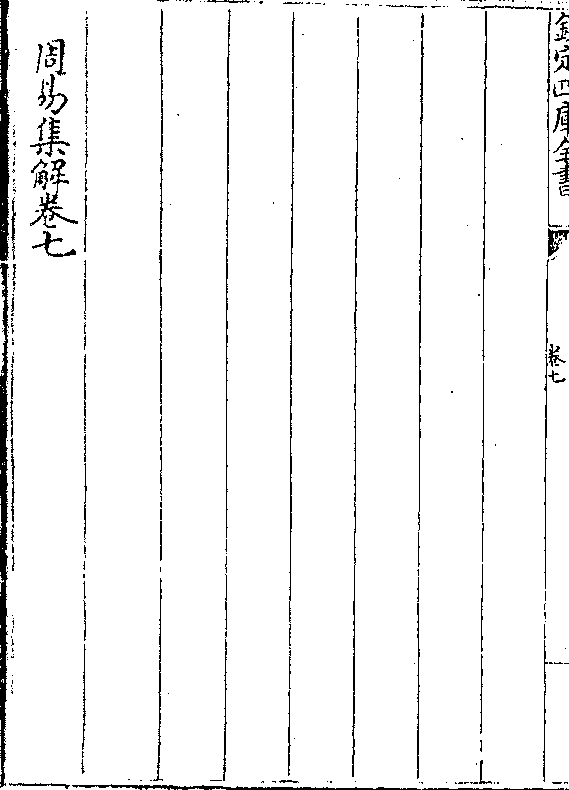 欽定四庫全書
卷七
周易集解卷七